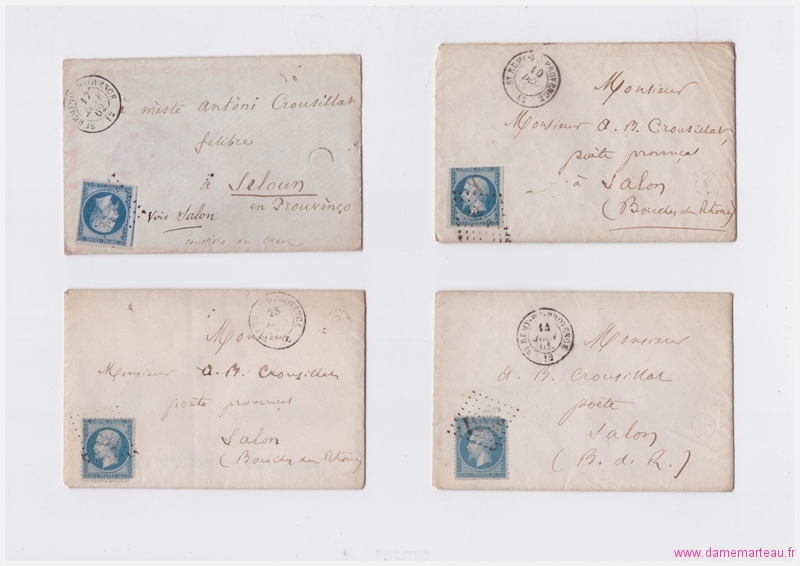 ST REMY-DE-PROVENCE
17
62
12
mèste Antòni Crousillat
felibre
à Seloun
en Prouvènço
Vois Salon
ST REMY-DE-PROVENCE
10
12
Monsieur
Monsieur A. B. Crousillat,
poëte provençal
à Salon
(Bouches du Rhône)
PROVENCE
23
Monsieur
Monsieur A. B. Crousillat
poëte provençal
Salon
(Bouches du Rhône)
EMPIRE FRANC
ST REMY-DE-PROVENCE
14
JUIN
12
Monsieur
A. B. Crousillat
poëte
Salon
(B. d. R.)
EMPIRE FRANC
www.damemarteau.fr